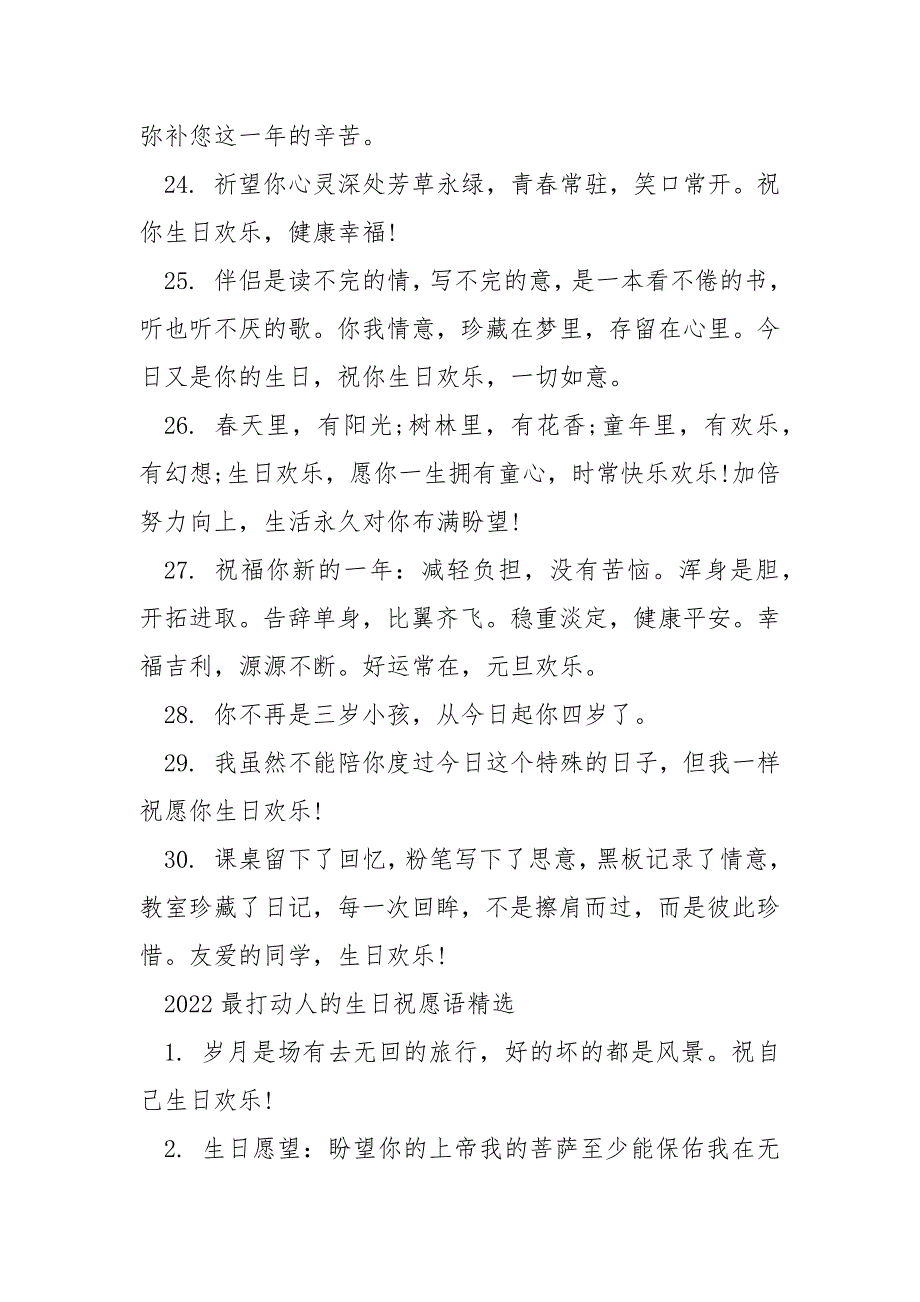 弥补您这一年的辛苦。
24. 祈望你心灵深处芳草永绿，青春常驻，笑口常开。祝
你生日欢乐，健康幸福!
25. 伴侣是读不完的情，写不完的意，是一本看不倦的书，
听也听不厌的歌。你我情意，珍藏在梦里，存留在心里。今
日又是你的生日，祝你生日欢乐，一切如意。
26. 春天里，有阳光;树林里，有花香;童年里，有欢乐，
有幻想;生日欢乐，愿你一生拥有童心，时常快乐欢乐!加倍
努力向上，生活永久对你布满盼望!
27. 祝福你新的一年：减轻负担，没有苦恼。浑身是胆，
开拓进取。告辞单身，比翼齐飞。稳重淡定，健康平安。幸
福吉利，源源不断。好运常在，元旦欢乐。
28. 你不再是三岁小孩，从今日起你四岁了。
29. 我虽然不能陪你度过今日这个特殊的日子，但我一样
祝愿你生日欢乐!
30. 课桌留下了回忆，粉笔写下了思意，黑板记录了情意，
教室珍藏了日记，每一次回眸，不是擦肩而过，而是彼此珍
惜。友爱的同学，生日欢乐!
2022最打动人的生日祝愿语精选
1. 岁月是场有去无回的旅行，好的坏的都是风景。祝自
己生日欢乐!
2. 生日愿望：盼望你的上帝我的菩萨至少能保佑我在无